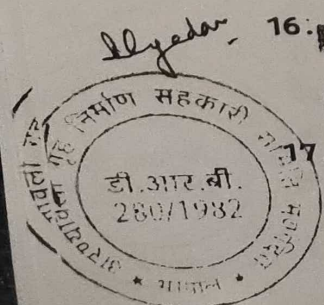 16.
17
अरण्यावली गृह निर्माण सहकारी समिति मर्यादित
डी.आर.बी.
280/1982
* भोपाल *